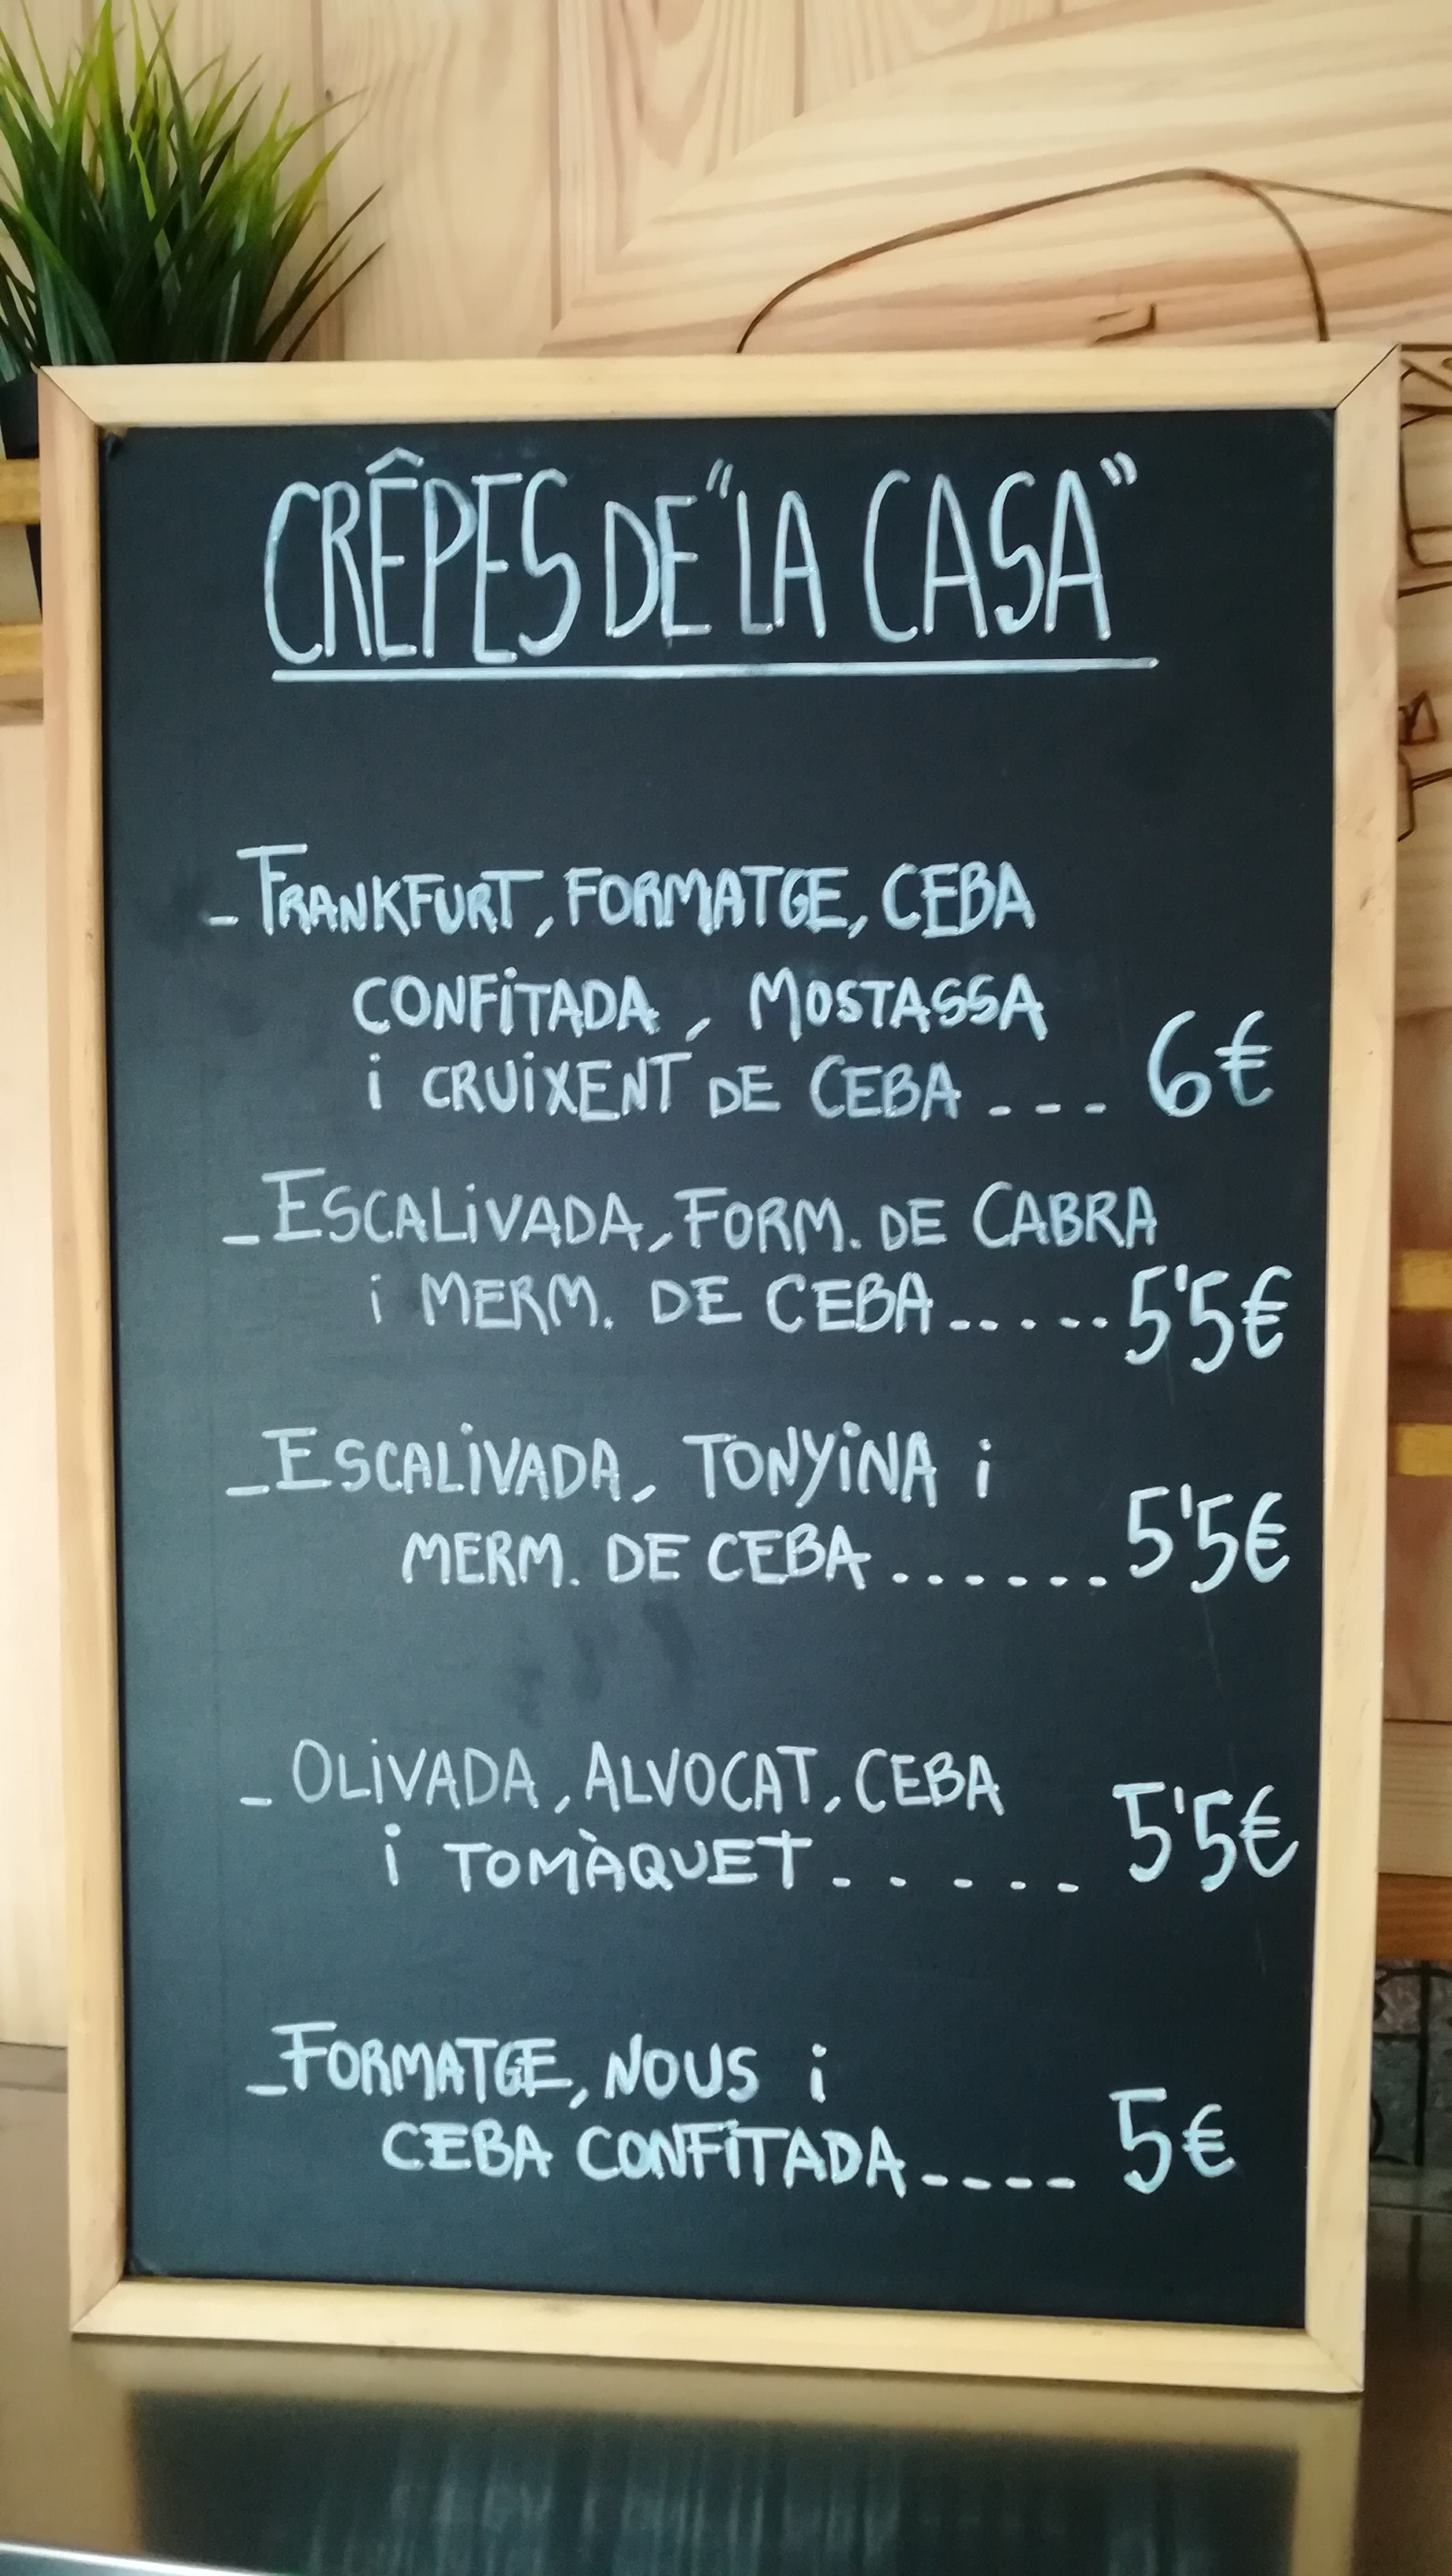 CRÊPES DE "LA CASA"
- FRANKFURT, FORMATGE, CEBA
CONFITADA, MOSTASSA
i CRUIXENT DE CEBA - - - 6€
- ESCALIVADA, FORM. DE CABRA
i MERM. DE CEBA ..... 5'5€
- ESCALIVADA, TONYINA i
MERM. DE CEBA ...... 5'5€
- OLIVADA, ALVOCAT, CEBA
i TOMÀQUET ..... 5'5€
- FORMATGE, NOUS i
CEBA CONFITADA ---- 5€